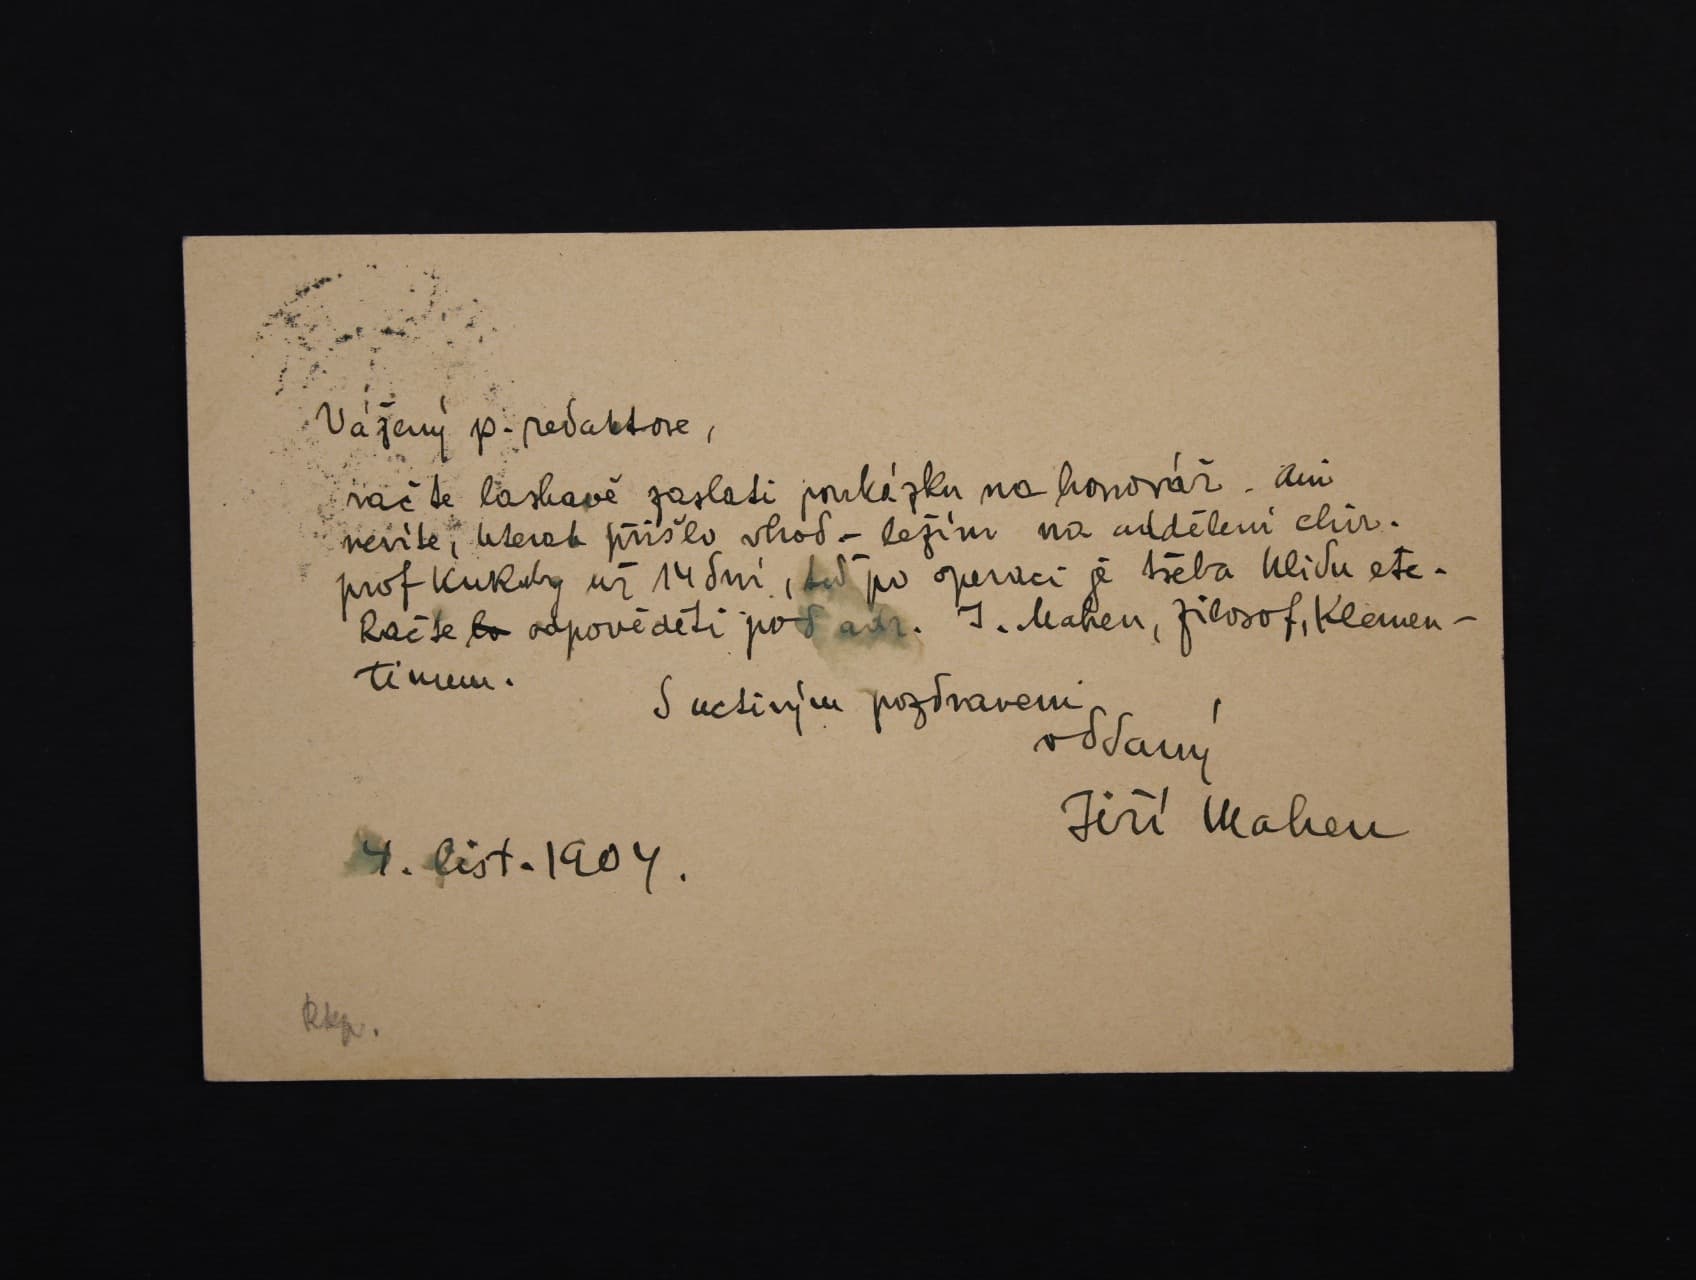 Vážený p. redaktore,
račte laskavě zaslati poukázku na honorář. Ani
nevíte, kterak přišlo vhod – ležím na oddělení chir.
prof Kukuly už 14 dní, teď po operaci je třeba klidu etc.
Račte to odpověděti pod adr. J. Mahen, filosof, Klemen-
tinum.
S uctivým pozdravem
oddaný
Jiří Mahen
4. list. 1904.
Rkp.